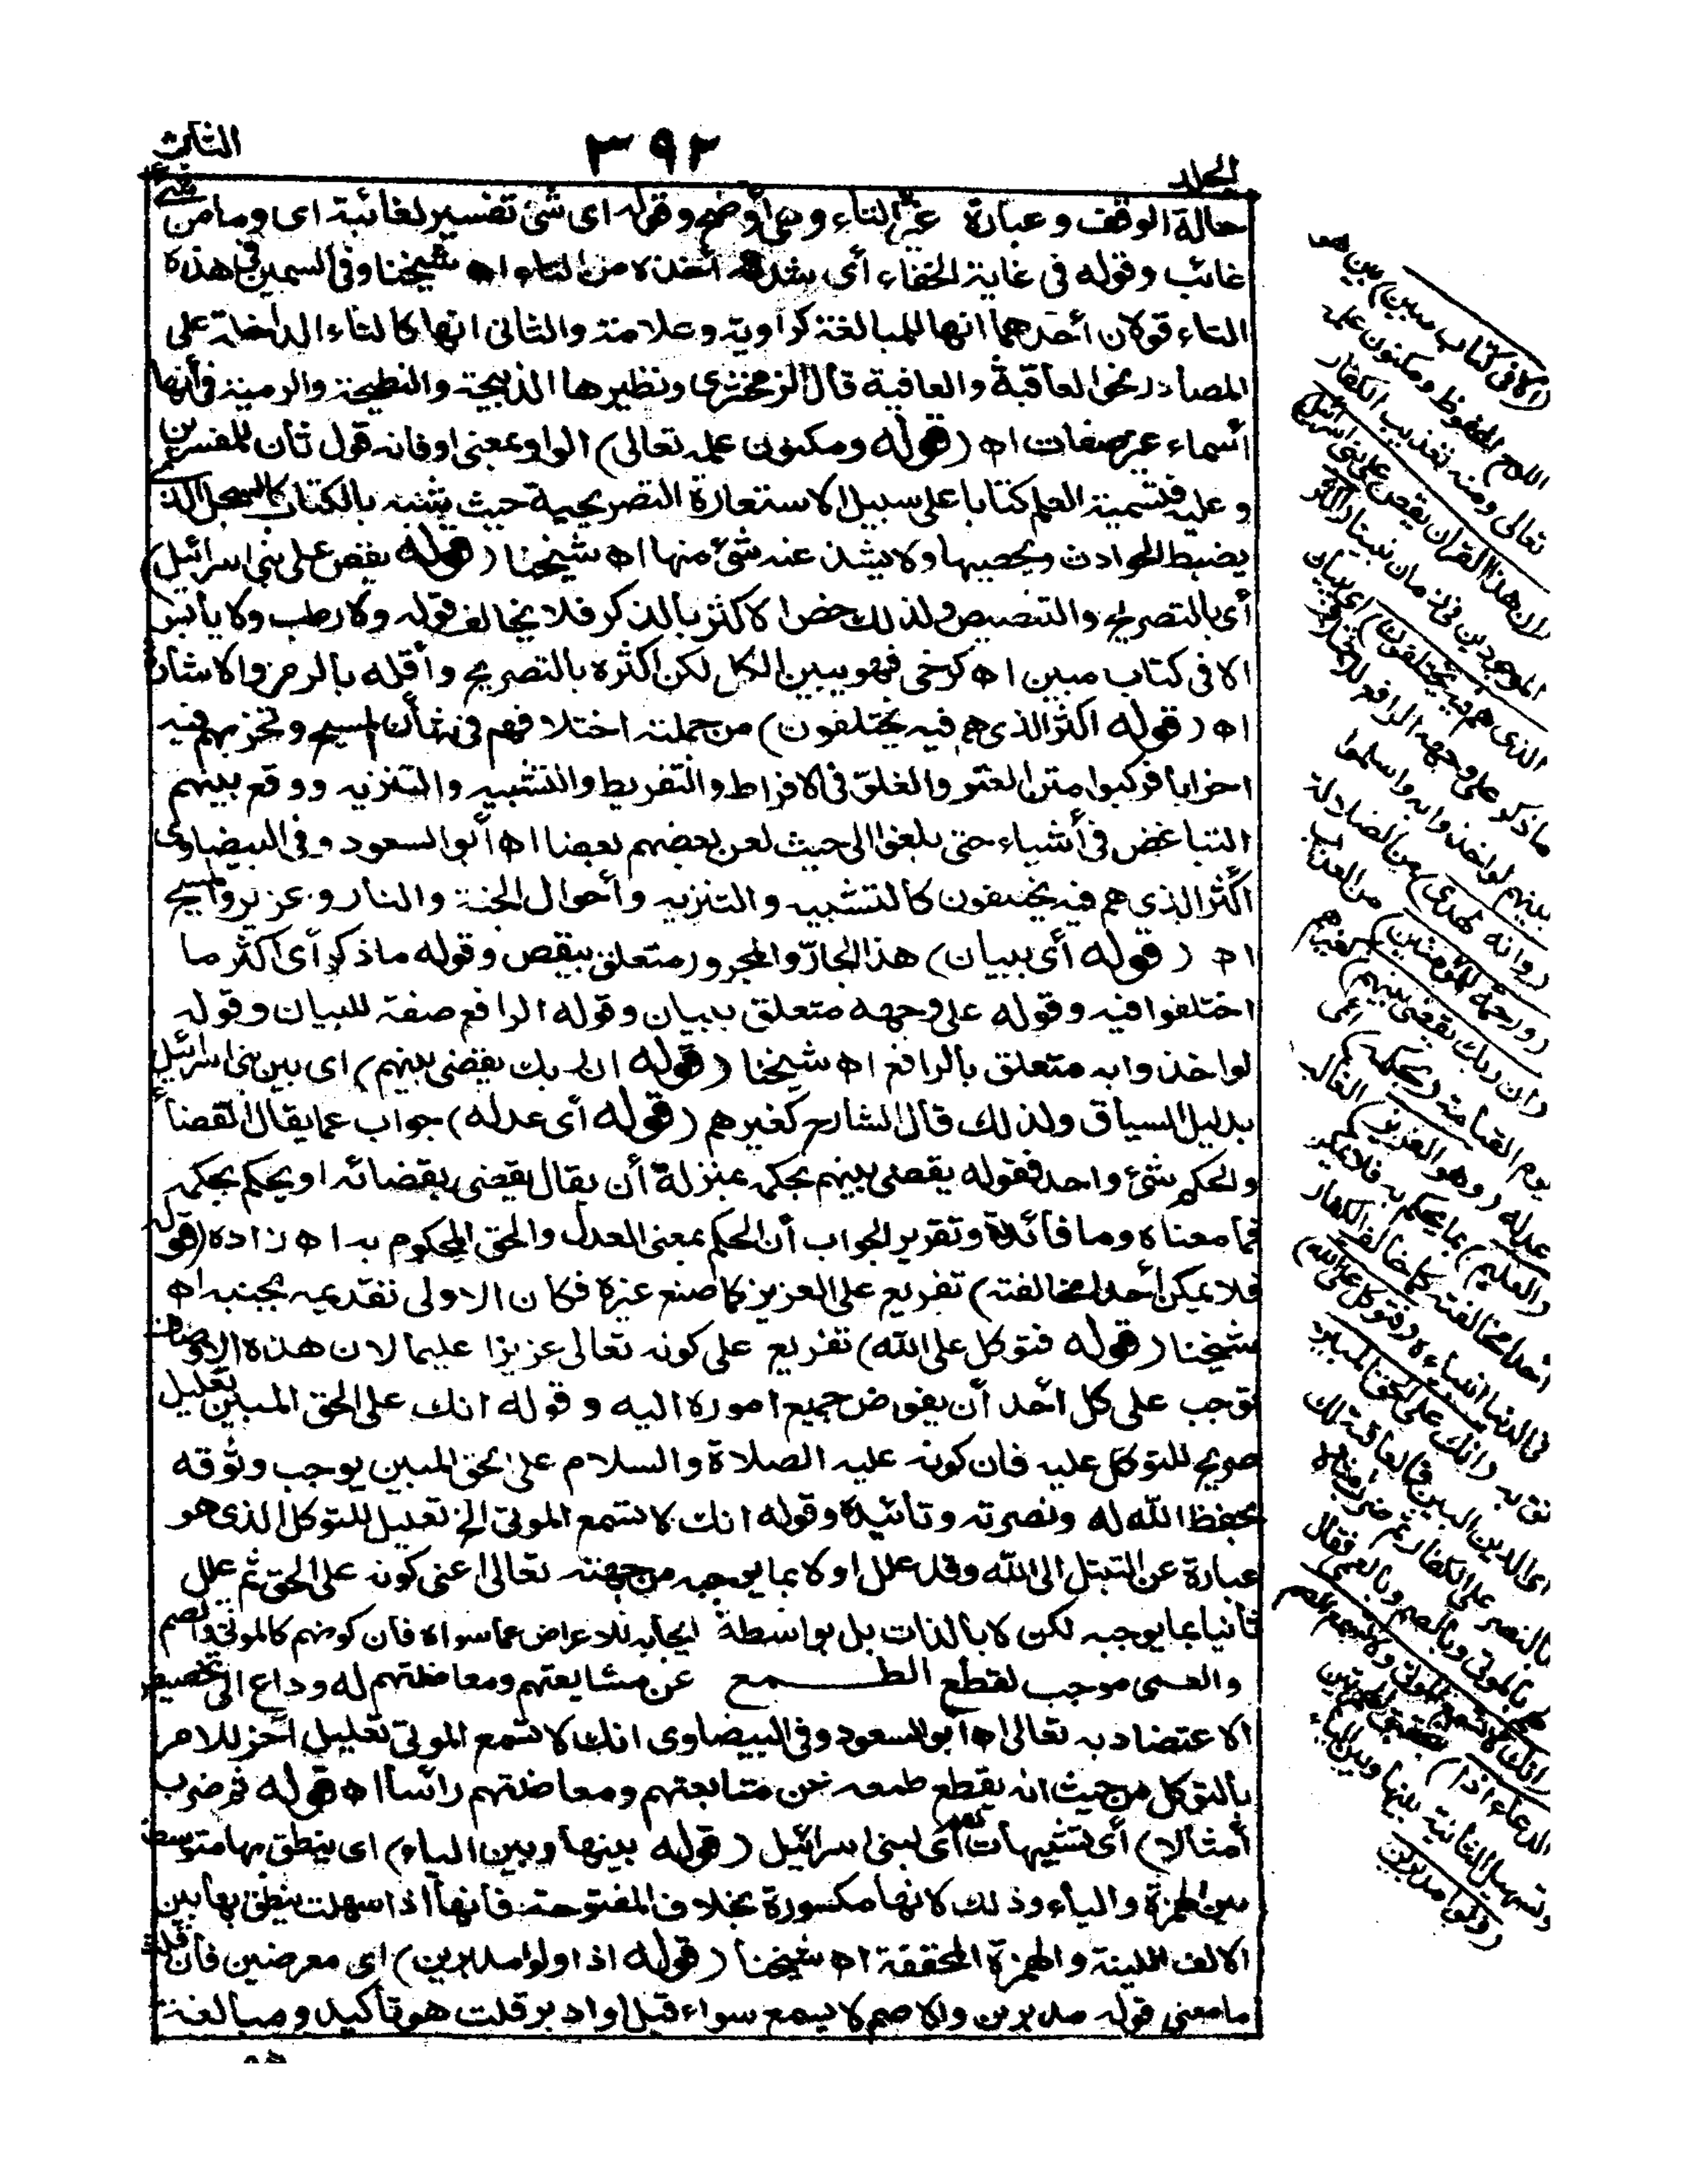 المجلد
٣٩٢
الثالث
حالة الوقف وعبارة غيره التاء وهي أوضح وقوله اى شئ تفسير لغائبة اى وما من شئ
غائب وقوله فى غاية الخفاء أى شدته أخذه من التاء اه شيخنا وفى السمين فى هذه
التاء قولان أحدهما انها للمبالغة كراوية وعلامة والثانى انها كالتاء الداخلة على
المصادر نحو العاقبة والعافية قال الزمخشرى ونظيرها الذبيحة والنطيحة والرمية فى أنها
أسماء غير صفات اه (قوله ومكنون علمه تعالى) الواو بمعنى او فانه قول ثان للمفسرين
وعليه فتسمية العلم كتابا على سبيل الاستعارة التصريحية حيث شبه بالكتاب كالسجل الذى
يضبط الحوادث ويحصيها ولا يشذ عنه شئ منها اه شيخنا (قوله يقص على بنى اسرائيل)
أى بالتصريح والتنصيص ولذلك خص الاكثر بالذكر فلا يخالف قوله ولا رطب ولا يابس
الا فى كتاب مبين اه كرخى فهو يبين الكل لكن اكثره بالتصريح وأقله بالرمز والاشارة
اه (قوله اكثر الذى هم فيه يختلفون) من جملته اختلافهم فى شأن المسيح وتحزبهم فيه
احزابا فركبوا متن العتو والغلو فى الافراط والتفريط والتشبيه والتنزيه ووقع بينهم
التباغض فى أشياء حتى بلغوا الى حيث لعن بعضهم بعضا اه أبو السعود وفى البيضاوى
أكثر الذى هم فيه يختلفون كالتشبيه والتنزيه وأحوال الجنة والنار وعزير والمسيح
اه (قوله أى ببيان) هذا الجار والمجرور متعلق بيقص وقوله ما ذكر أى اكثر ما
اختلفوا فيه وقوله على وجهه متعلق ببيان وقوله الرافع صفة للبيان وقوله
لو اخذوا به متعلق بالرافع اه شيخنا (قوله ان ربك يقضى بينهم) اى بين بنى اسرائيل
بدليل السياق ولذلك قال الشارح كغيرهم (قوله أى عدله) جواب عما يقال القضاء
والحكم شئ واحد فقوله يقضى بينهم بحكمه بمنزلة أن يقال يقضى بقضائه او يحكم بحكمه
فما معناه وما فائدته وتقرير الجواب أن الحكم بمعنى العدل والحق المحكوم به اه زاده (قوله
فلا يمكن أحدا مخالفته) تفريع على العزيز كما صنع غيره فكان الاولى تقديمه بجنبه اه
شيخنا (قوله فتوكل على الله) تفريع على كونه تعالى عزيزا عليما لان هذه الاوصاف
توجب على كل أحد أن يفوض جميع اموره اليه وقوله انك على الحق المبين تعليل
صريح للتوكل عليه فان كونه عليه الصلاة والسلام على الحق المبين يوجب وثوقه
بحفظ الله له ونصرته وتأييده وقوله انك لا تسمع الموتى الخ تعليل للتوكل الذى هو
عبارة عن التبتل الى الله وقد علل اولا بما يوجبه من جهته تعالى اعنى كونه على الحق ثم علل
ثانيا بما يوجبه لكن لا بالذات بل بواسطة ايجابه للاعراض عما سواه فان كونهم كالموتى والصم
والعمى موجب لقطع الطمع عن مشايعتهم ومعاضدتهم له وداع الى تخصيص
الاعتضاد به تعالى اه أبو السعود وفى البيضاوى انك لا تسمع الموتى تعليل أخر للامر
بالتوكل من حيث انه يقطع طمعه عن متابعتهم ومعاضدتهم رأسا اه قوله ثم ضرب
أمثالا) أى تشبيهات لهم أى لبنى اسرائيل (قوله بينها وبين الياء) اى ينطق بها متوسطة
بين الهمزة والياء وذلك لانها مكسورة بخلاف المفتوحة فانها اذا سهلت ينطق بها بين
الالف اللينة والهمزة المحققة اه شيخنا (قوله اذا ولوا مدبرين) اى معرضين فان قلت
ما معنى قوله مدبرين والاصم لا يسمع سواء قبل او ادبر قلت هو تأكيد ومبالغة
(الا فى كتاب مبين) بين هو
اللوح المحفوظ ومكنون علمه
تعالى ومنه تعذيب الكفار
(ان هذا القران يقص على بنى اسرائيل)
الموجودين فى زمان نبينا (اكثر
الذى هم فيه يختلفون) اى ببيان
ما ذكر على وجهه الرافع للاختلاف
بينهم لو اخذوا به واسلموا
(وانه لهدى) من الضلالة
(ورحمة للمؤمنين) من العذاب
(ان ربك يقضى بينهم) كغيرهم
يوم القيامة (بحكمه) اى
عدله (وهو العزيز) الغالب
(العليم) بما يحكم به فلا يمكن
أحدا مخالفته كما خالف الكفار
فى الدنيا انبياءه (فتوكل على الله)
ثق به (انك على الحق المبين)
اى الدين البين فالعاقبة لك
بالنصر على الكفار ثم ضرب امثالا
لهم بالموتى وبالصم وبالعمى فقال
(انك لا تسمع الموتى ولا تسمع الصم
الدعاء اذا) بتحقيق الهمزتين
وتسهيل الثانية بينها وبين الياء
(ولوا مدبرين